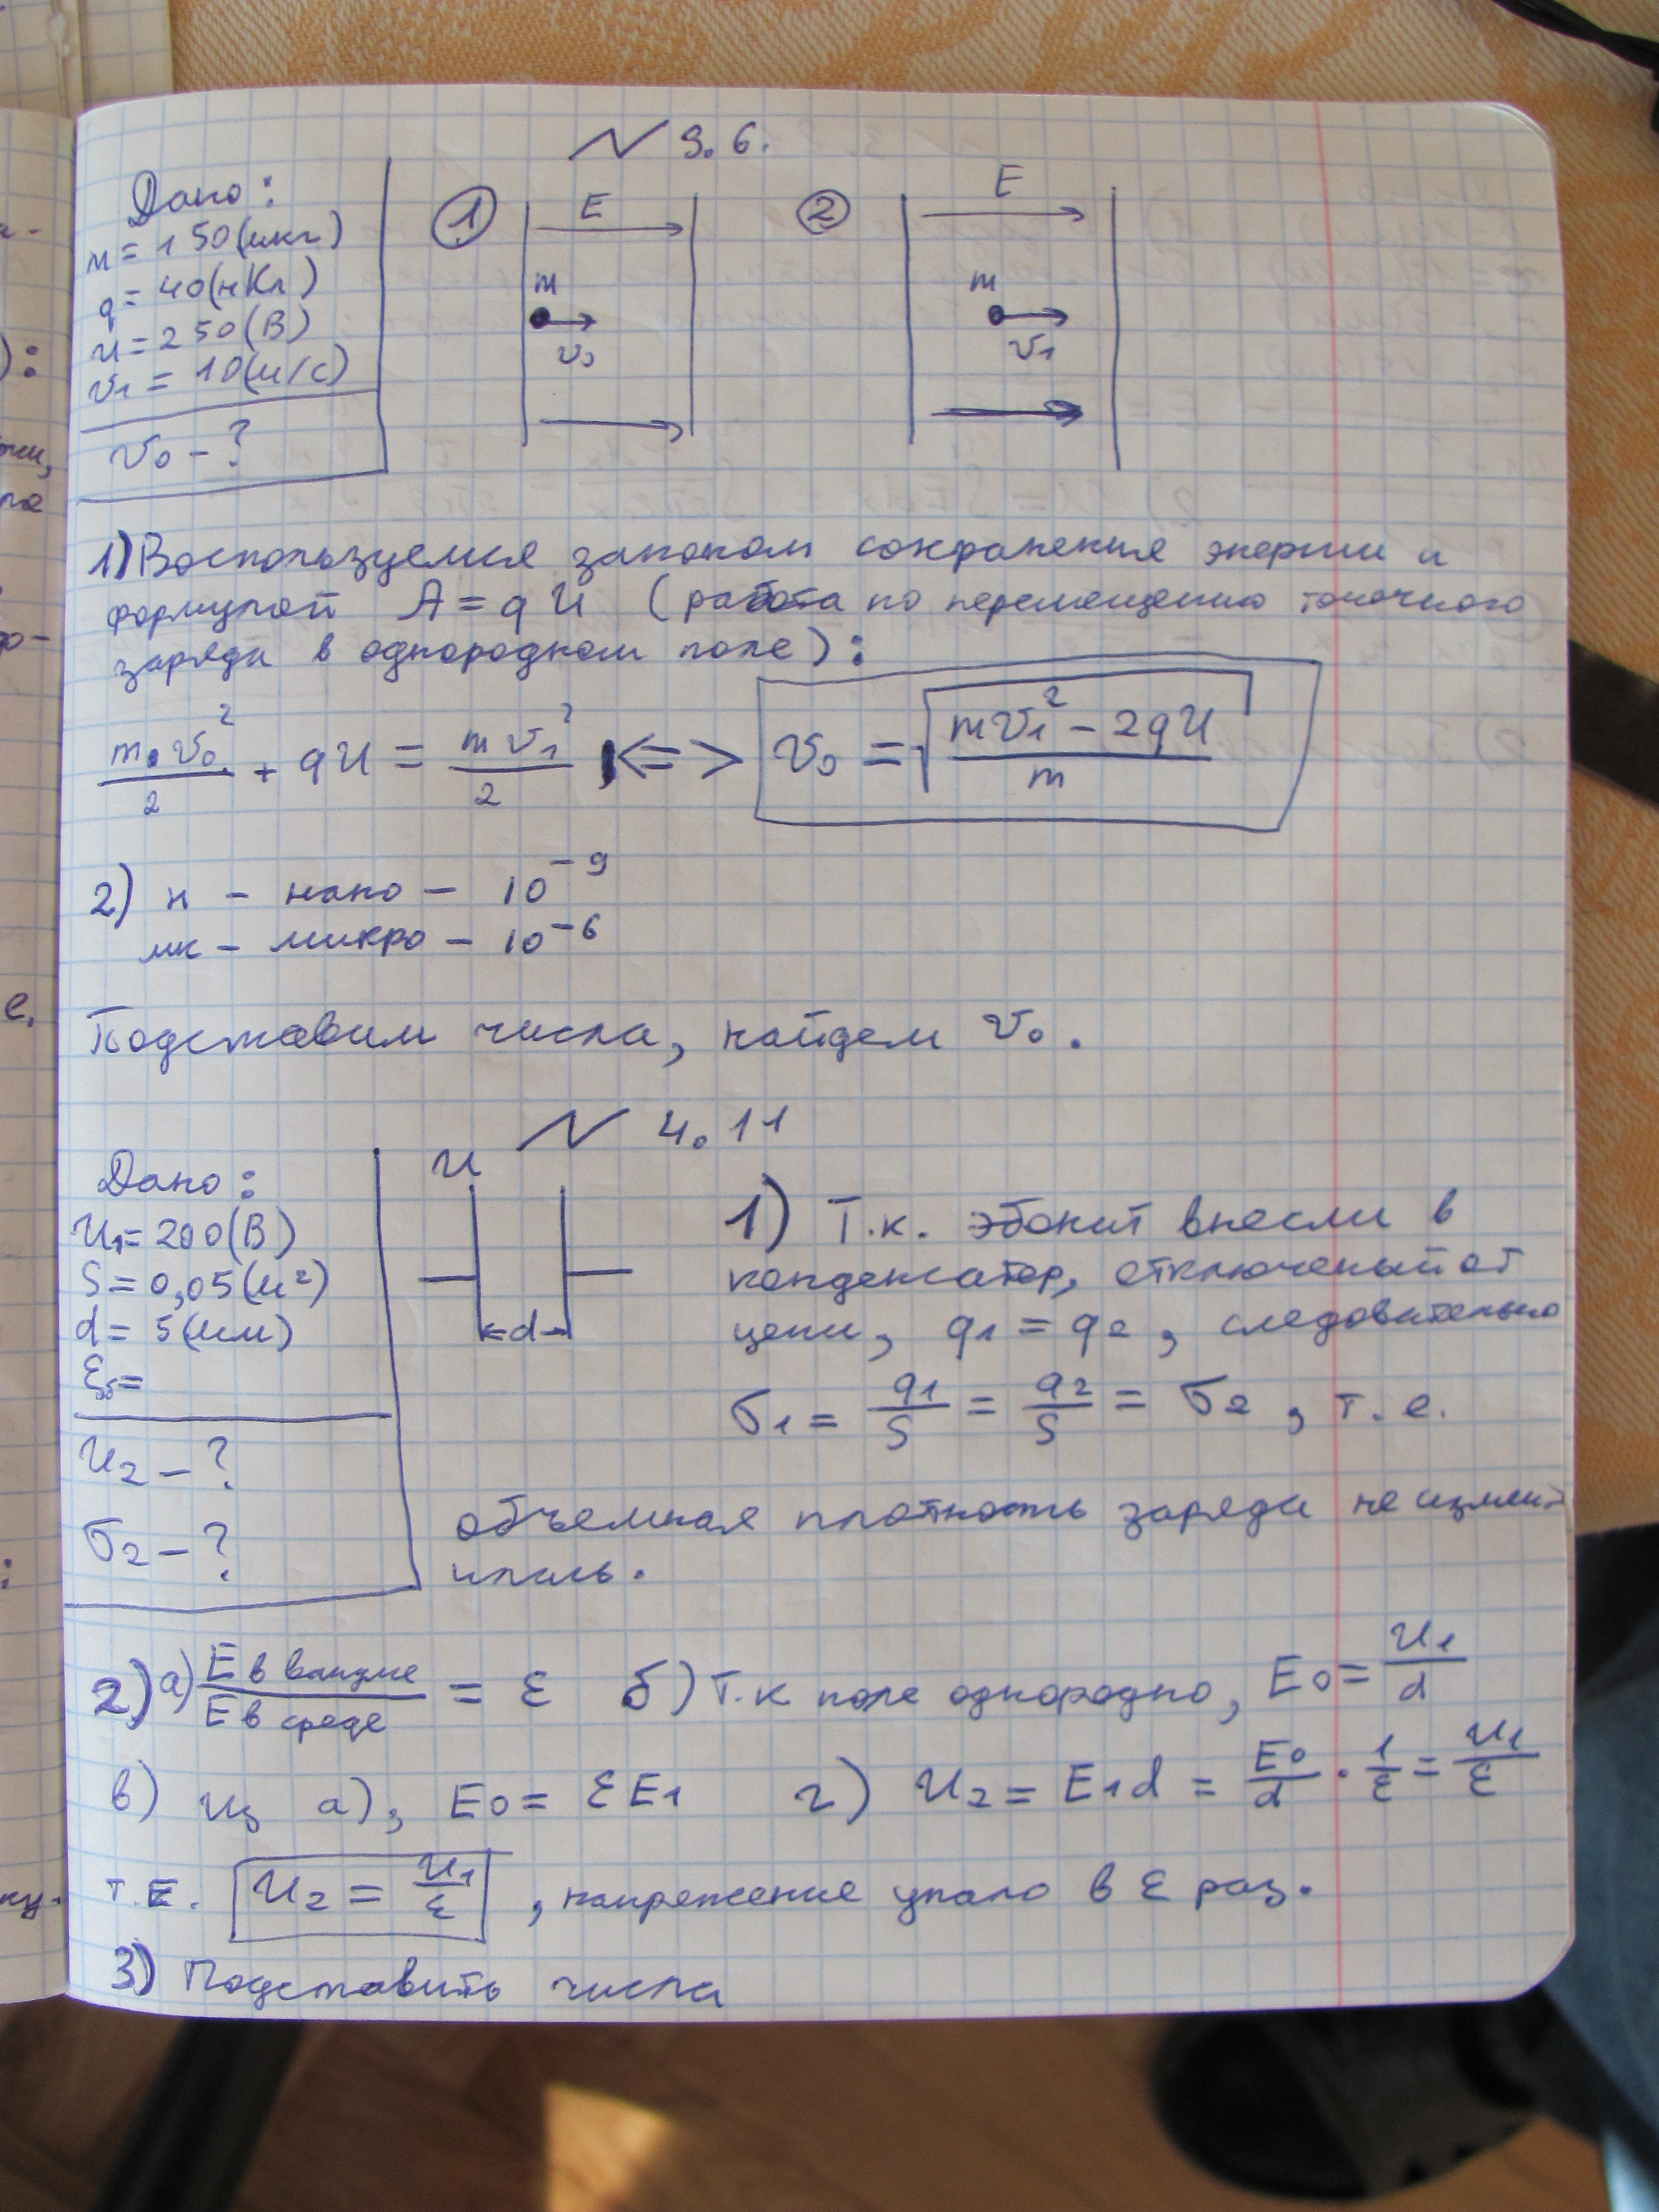 N 3.6.
Дано:
m = 150(мкг)
q = 40(нКл)
U = 250(В)
v₁ = 10(м/с)
v₀ - ?
① E
m
v₀
② E
m
v₁
1) Воспользуемся законом сохранения энергии и
формулой A = qU (работа по перемещению точечного
заряда в однородном поле):
m v₀²/2 + qU = m v₁²/2 <=> v₀ = √((m v₁² - 2qU)/m)
2) н - нано - 10⁻⁹
мк - микро - 10⁻⁶
Подставим числа, найдем v₀.
N 4.11
Дано:
U₁ = 200(В)
S = 0,05(м²)
d = 5(мм)
εэб =
U₂ - ?
σ₂ - ?
U
d
1) Т.к. эбонит внесли в
конденсатор, отключеный от
цепи, q₁ = q₂, следовательно
σ₁ = q₁/S = q₂/S = σ₂, т.е.
объемная плотность заряда не изме-
нилась.
2) а) E в вакууме / E в среде = ε б) т.к поле однородно, E₀ = U₁/d
в) Из а), E₀ = εE₁ г) U₂ = E₁d = E₀/d · 1/ε = U₁/ε
т.е. U₂ = U₁/ε, напряжение упало в ε раз.
3) Подставить числа